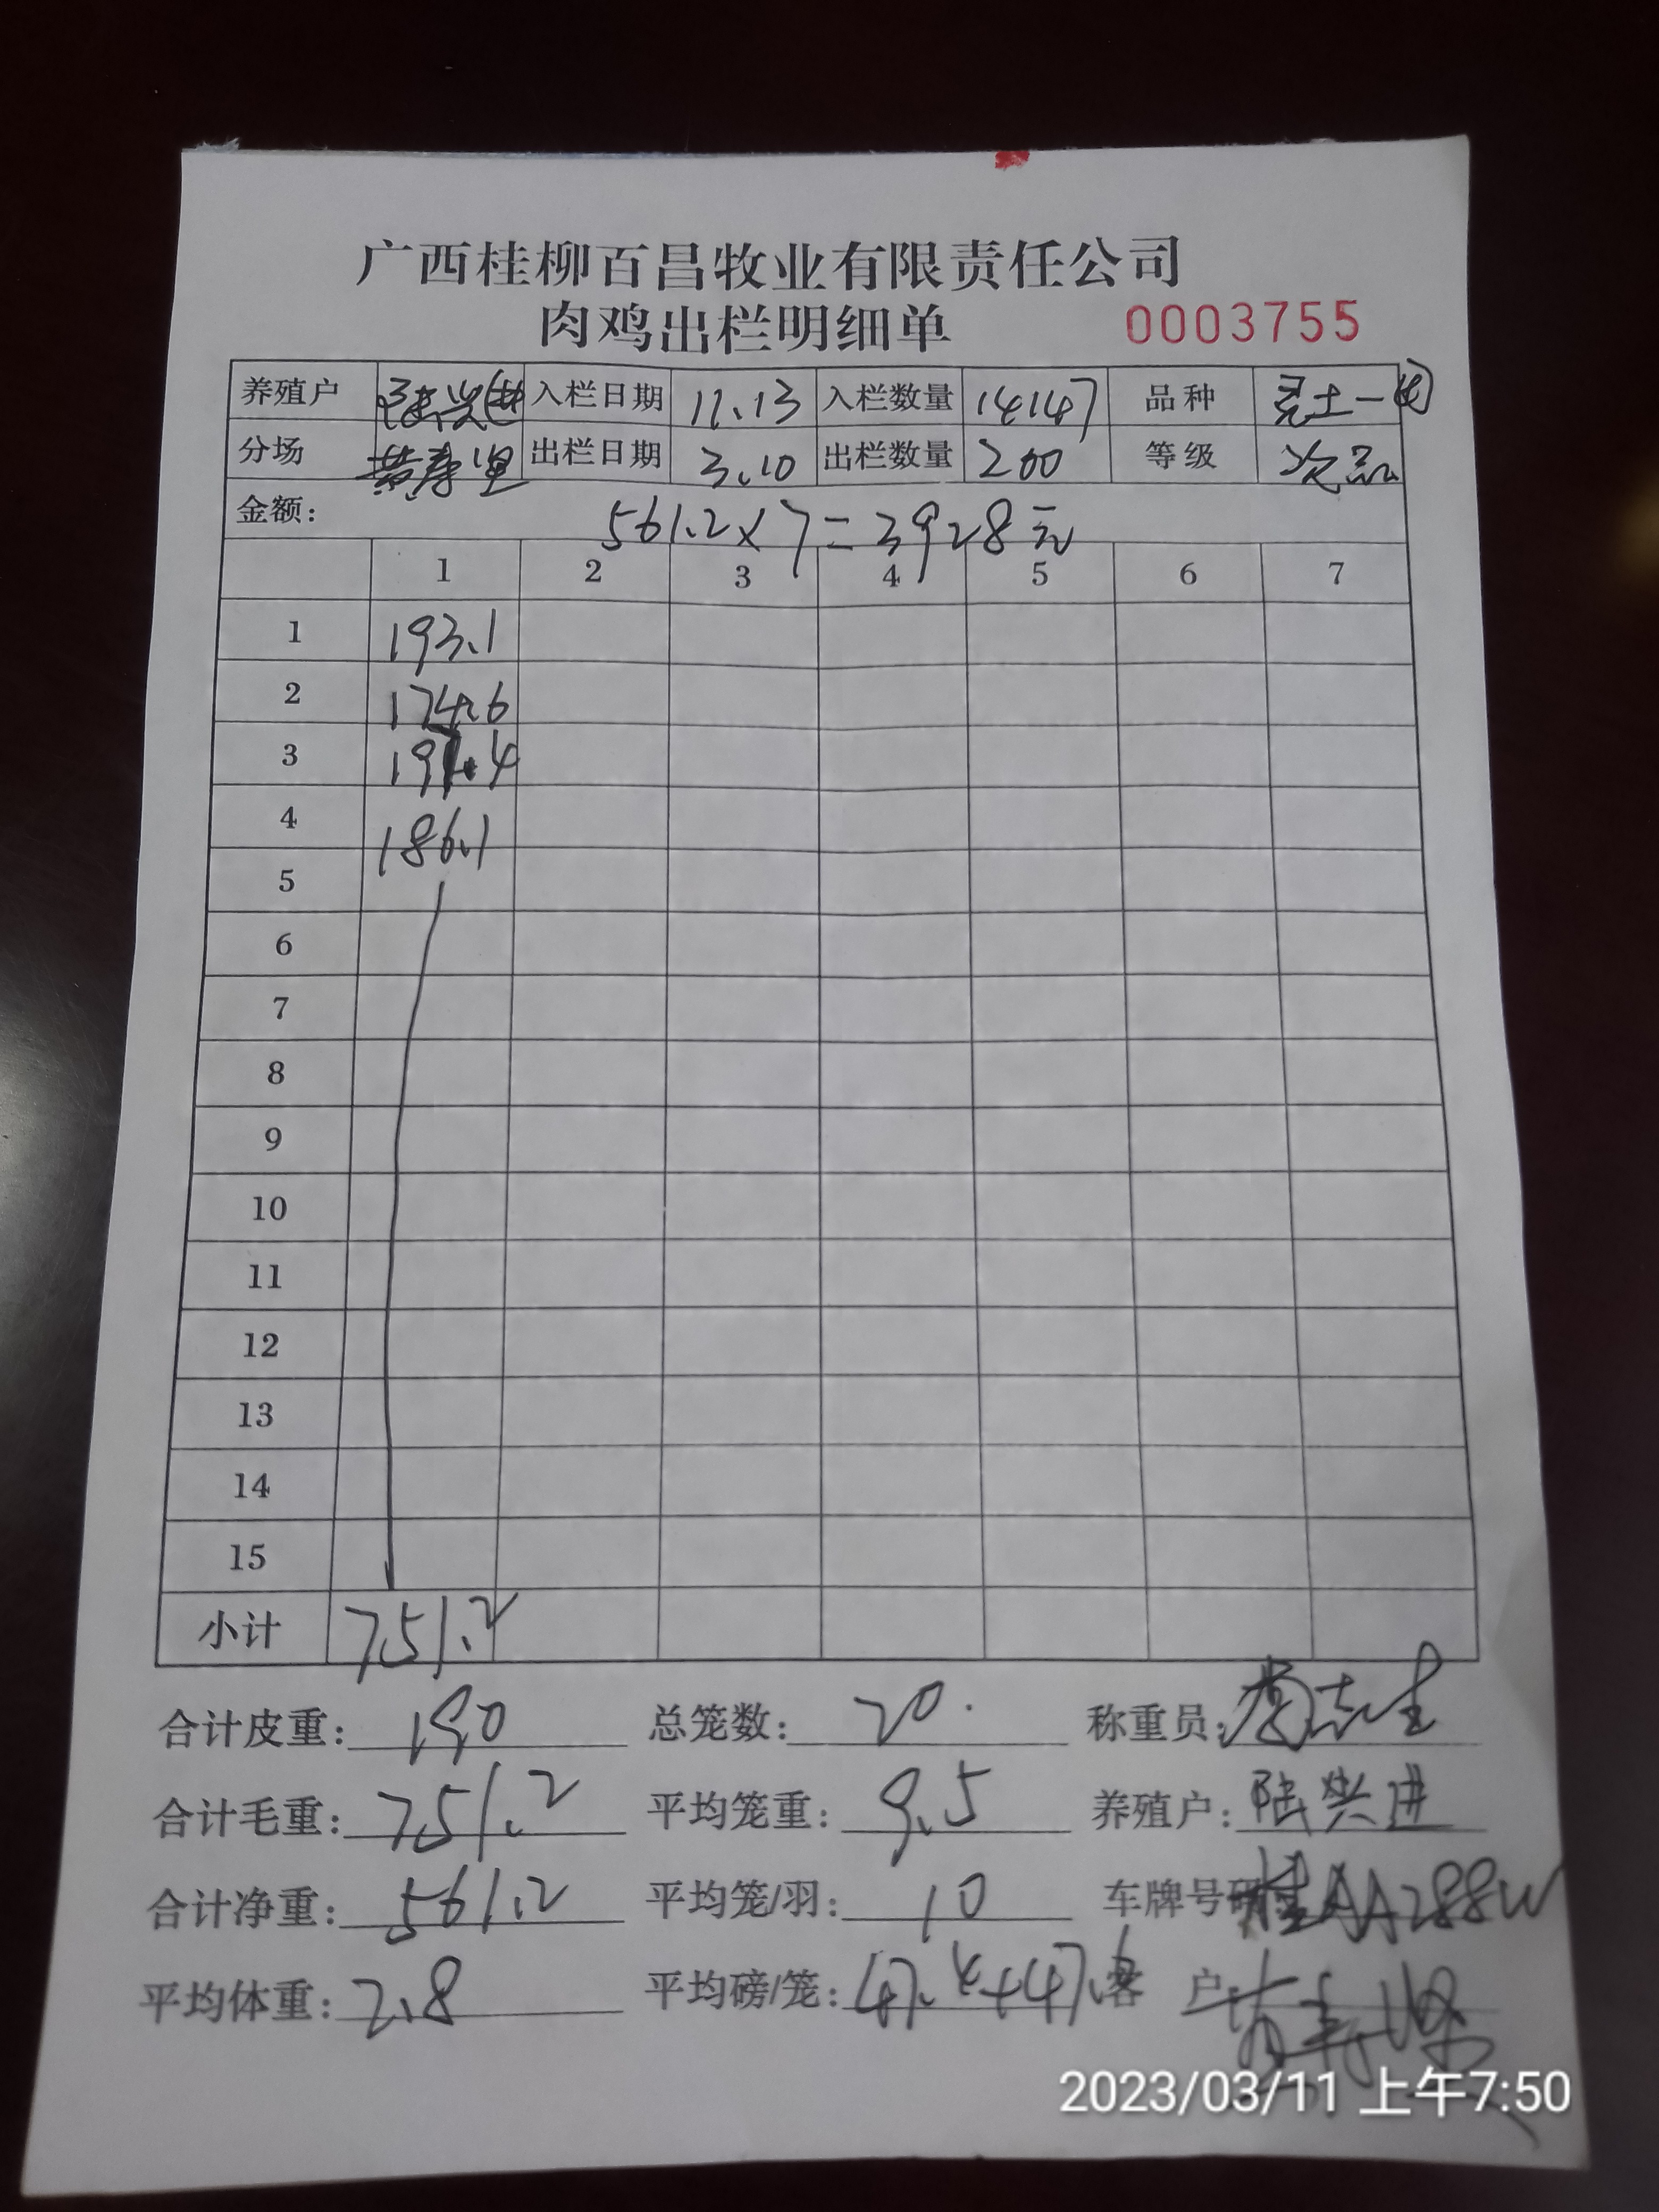 广西桂柳百昌牧业有限责任公司
肉鸡出栏明细单 0003755
养殖户 陆兴进 入栏日期 11.13 入栏数量 14147 品种 土一
分场 黄寿 出栏日期 3.10 出栏数量 200 等级 次品
金额: 561.2×7=3928元
1 2 3 4 5 6 7
1 193.1
2 174.6
3 197.4
4 186.1
5
6
7
8
9
10
11
12
13
14
15
小计 751.2
合计皮重: 190 总笼数: 20. 称重员: 志生
合计毛重: 751.2 平均笼重: 9.5 养殖户: 陆兴进
合计净重: 561.2 平均笼/羽: 10 车牌号码 桂AA288W
平均体重: 2.8 平均磅/笼: 客 户
2023/03/11 上午7:50